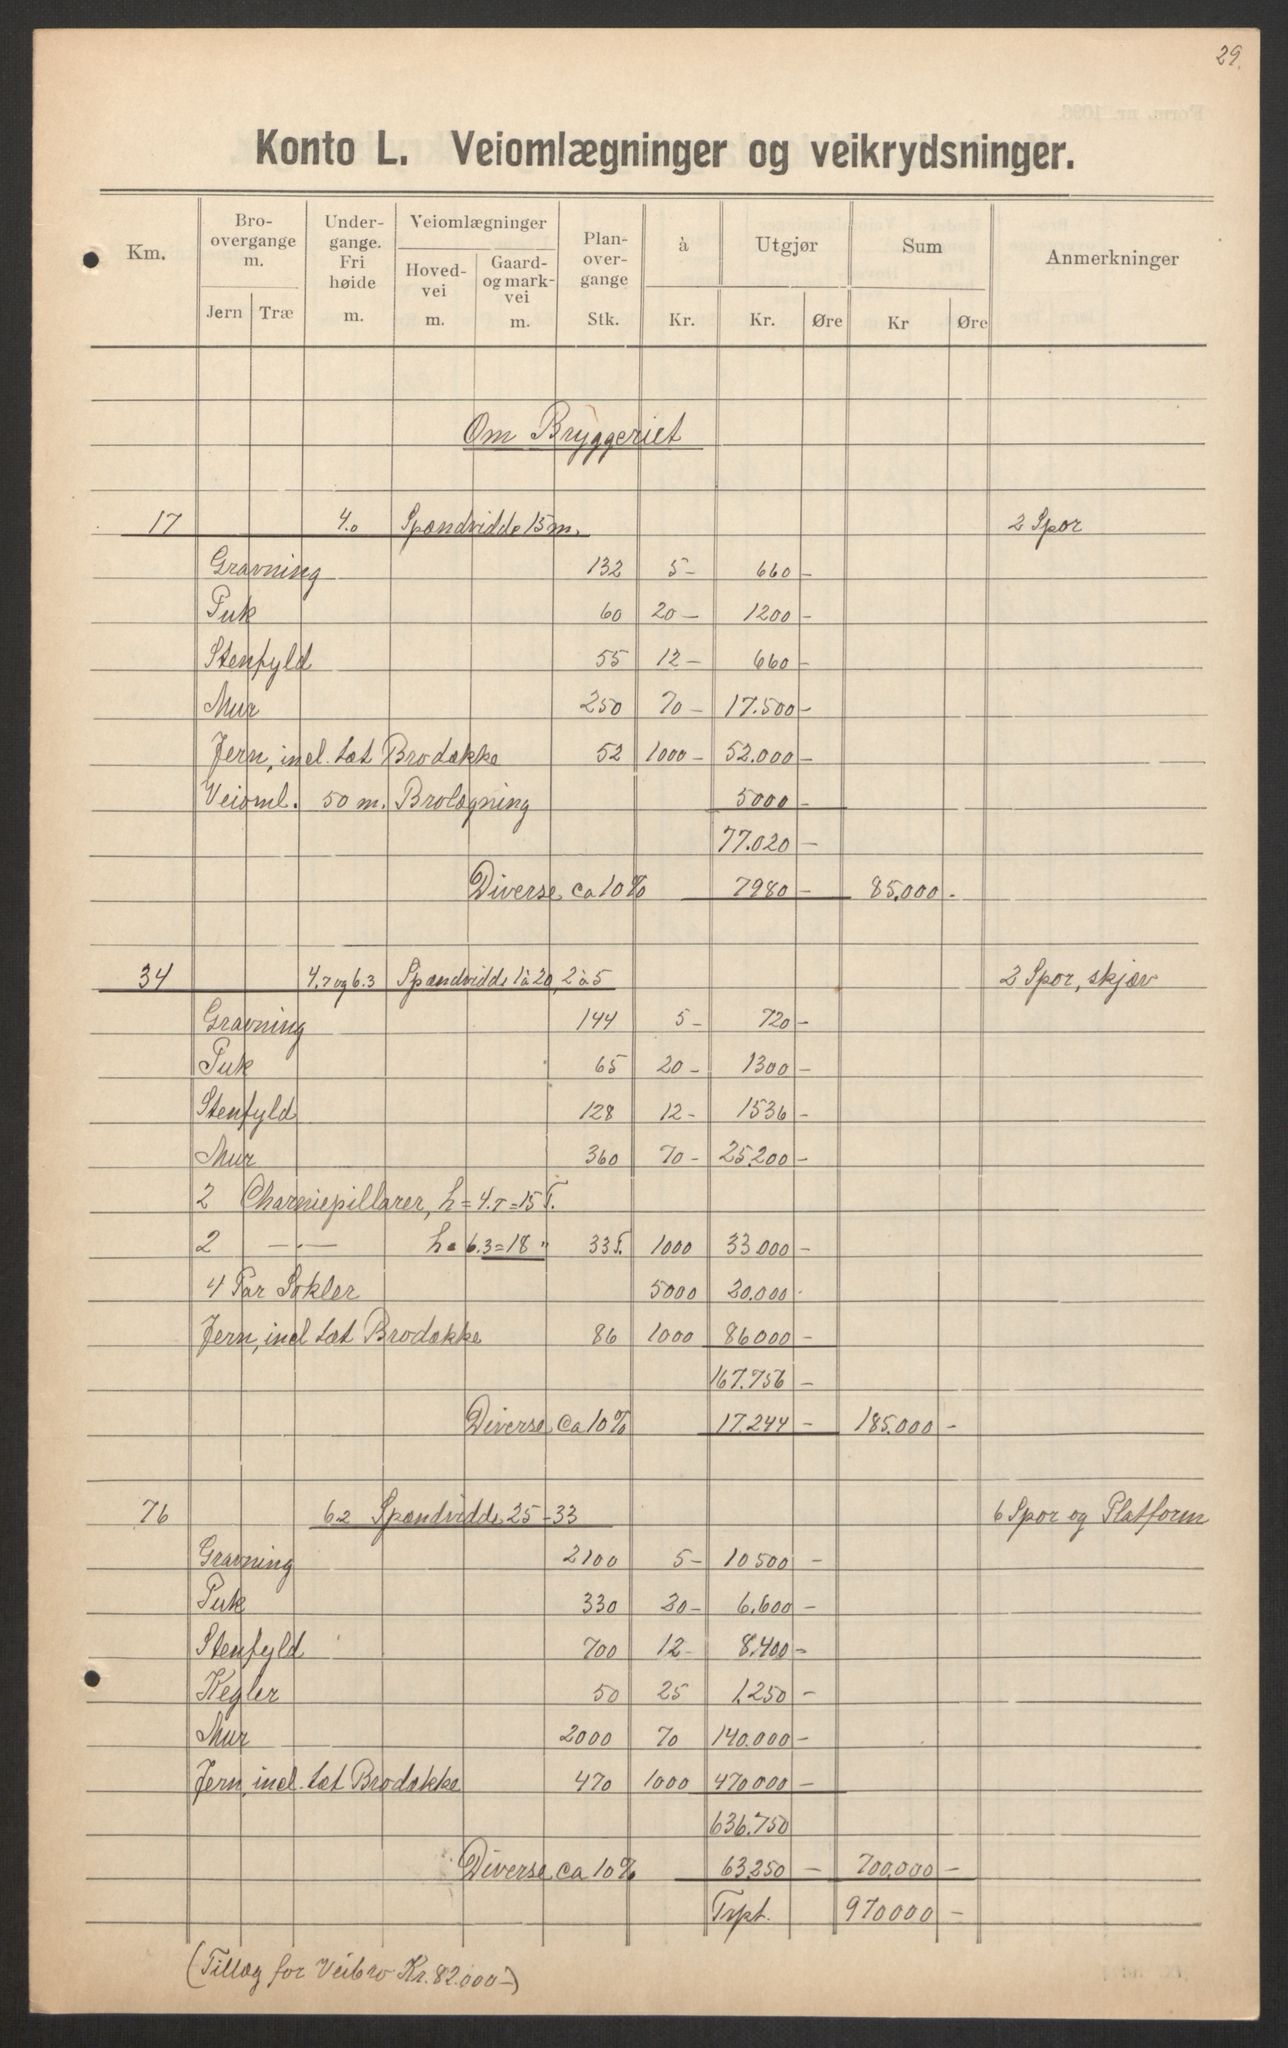 29.
Konto L. Veiomlægninger og veikrydsninger.
Km. | Bro-overgange m. Jern Træ | Under-gange. Fri høide m. | Veiomlægninger Hoved-vei m. Gaard- og mark-vei m. | Plan-over-gange Stk. | à Kr. | Utgjør Kr. Øre | Sum Kr Øre | Anmerkninger
Om Bryggeriet
17 4.0 Spændvidde 15 m. 2 Spor
Gravning 132 5- 660 -
Puk 60 20 - 1200 -
Stenfyld 55 12 - 660 -
Mur 250 70 - 17.500 -
Jern, incl. tæt Brodække 52 1000 - 52.000 -
Veioml. 50 m. Brolægning 5000 -
77.020 -
Diverse ca 10% 7980 - 85.000 -
34 4.7 og 6.3 Spændvidde 1 à 20, 2 à 5 2 Spor, skjæv
Gravning 144 5- 720 -
Puk 65 20 - 1300 -
Stenfyld 128 12 - 1536 -
Mur 360 70 - 25.200 -
2 Charniepillarer, h = 4.7 = 15 T.
2 —·— h = 6.3 = 18 " 33 T. 1000 33.000 -
4 Par Sokler 5000 20.000 -
Jern, incl tæt Brodække 86 1000 86000 -
167.756 -
Diverse ca 10% 17.244 - 185.000 -
76 6.2 Spændvidde 25-33 6 Spor og Platform
Gravning 2100 5- 10500 -
Puk 330 20 - 6.600 -
Stenfyld 700 12 - 8.400 -
Kegler 50 25 1.250 -
Mur 2000 70 140.000 -
Jern, incl. tæt Brodække 470 1000 470000 -
636.750
Diverse ca 10% 63.250 - 700.000 -
Trpt. 970000 -
(Tillæg for Veibro Kr. 82.000 -)